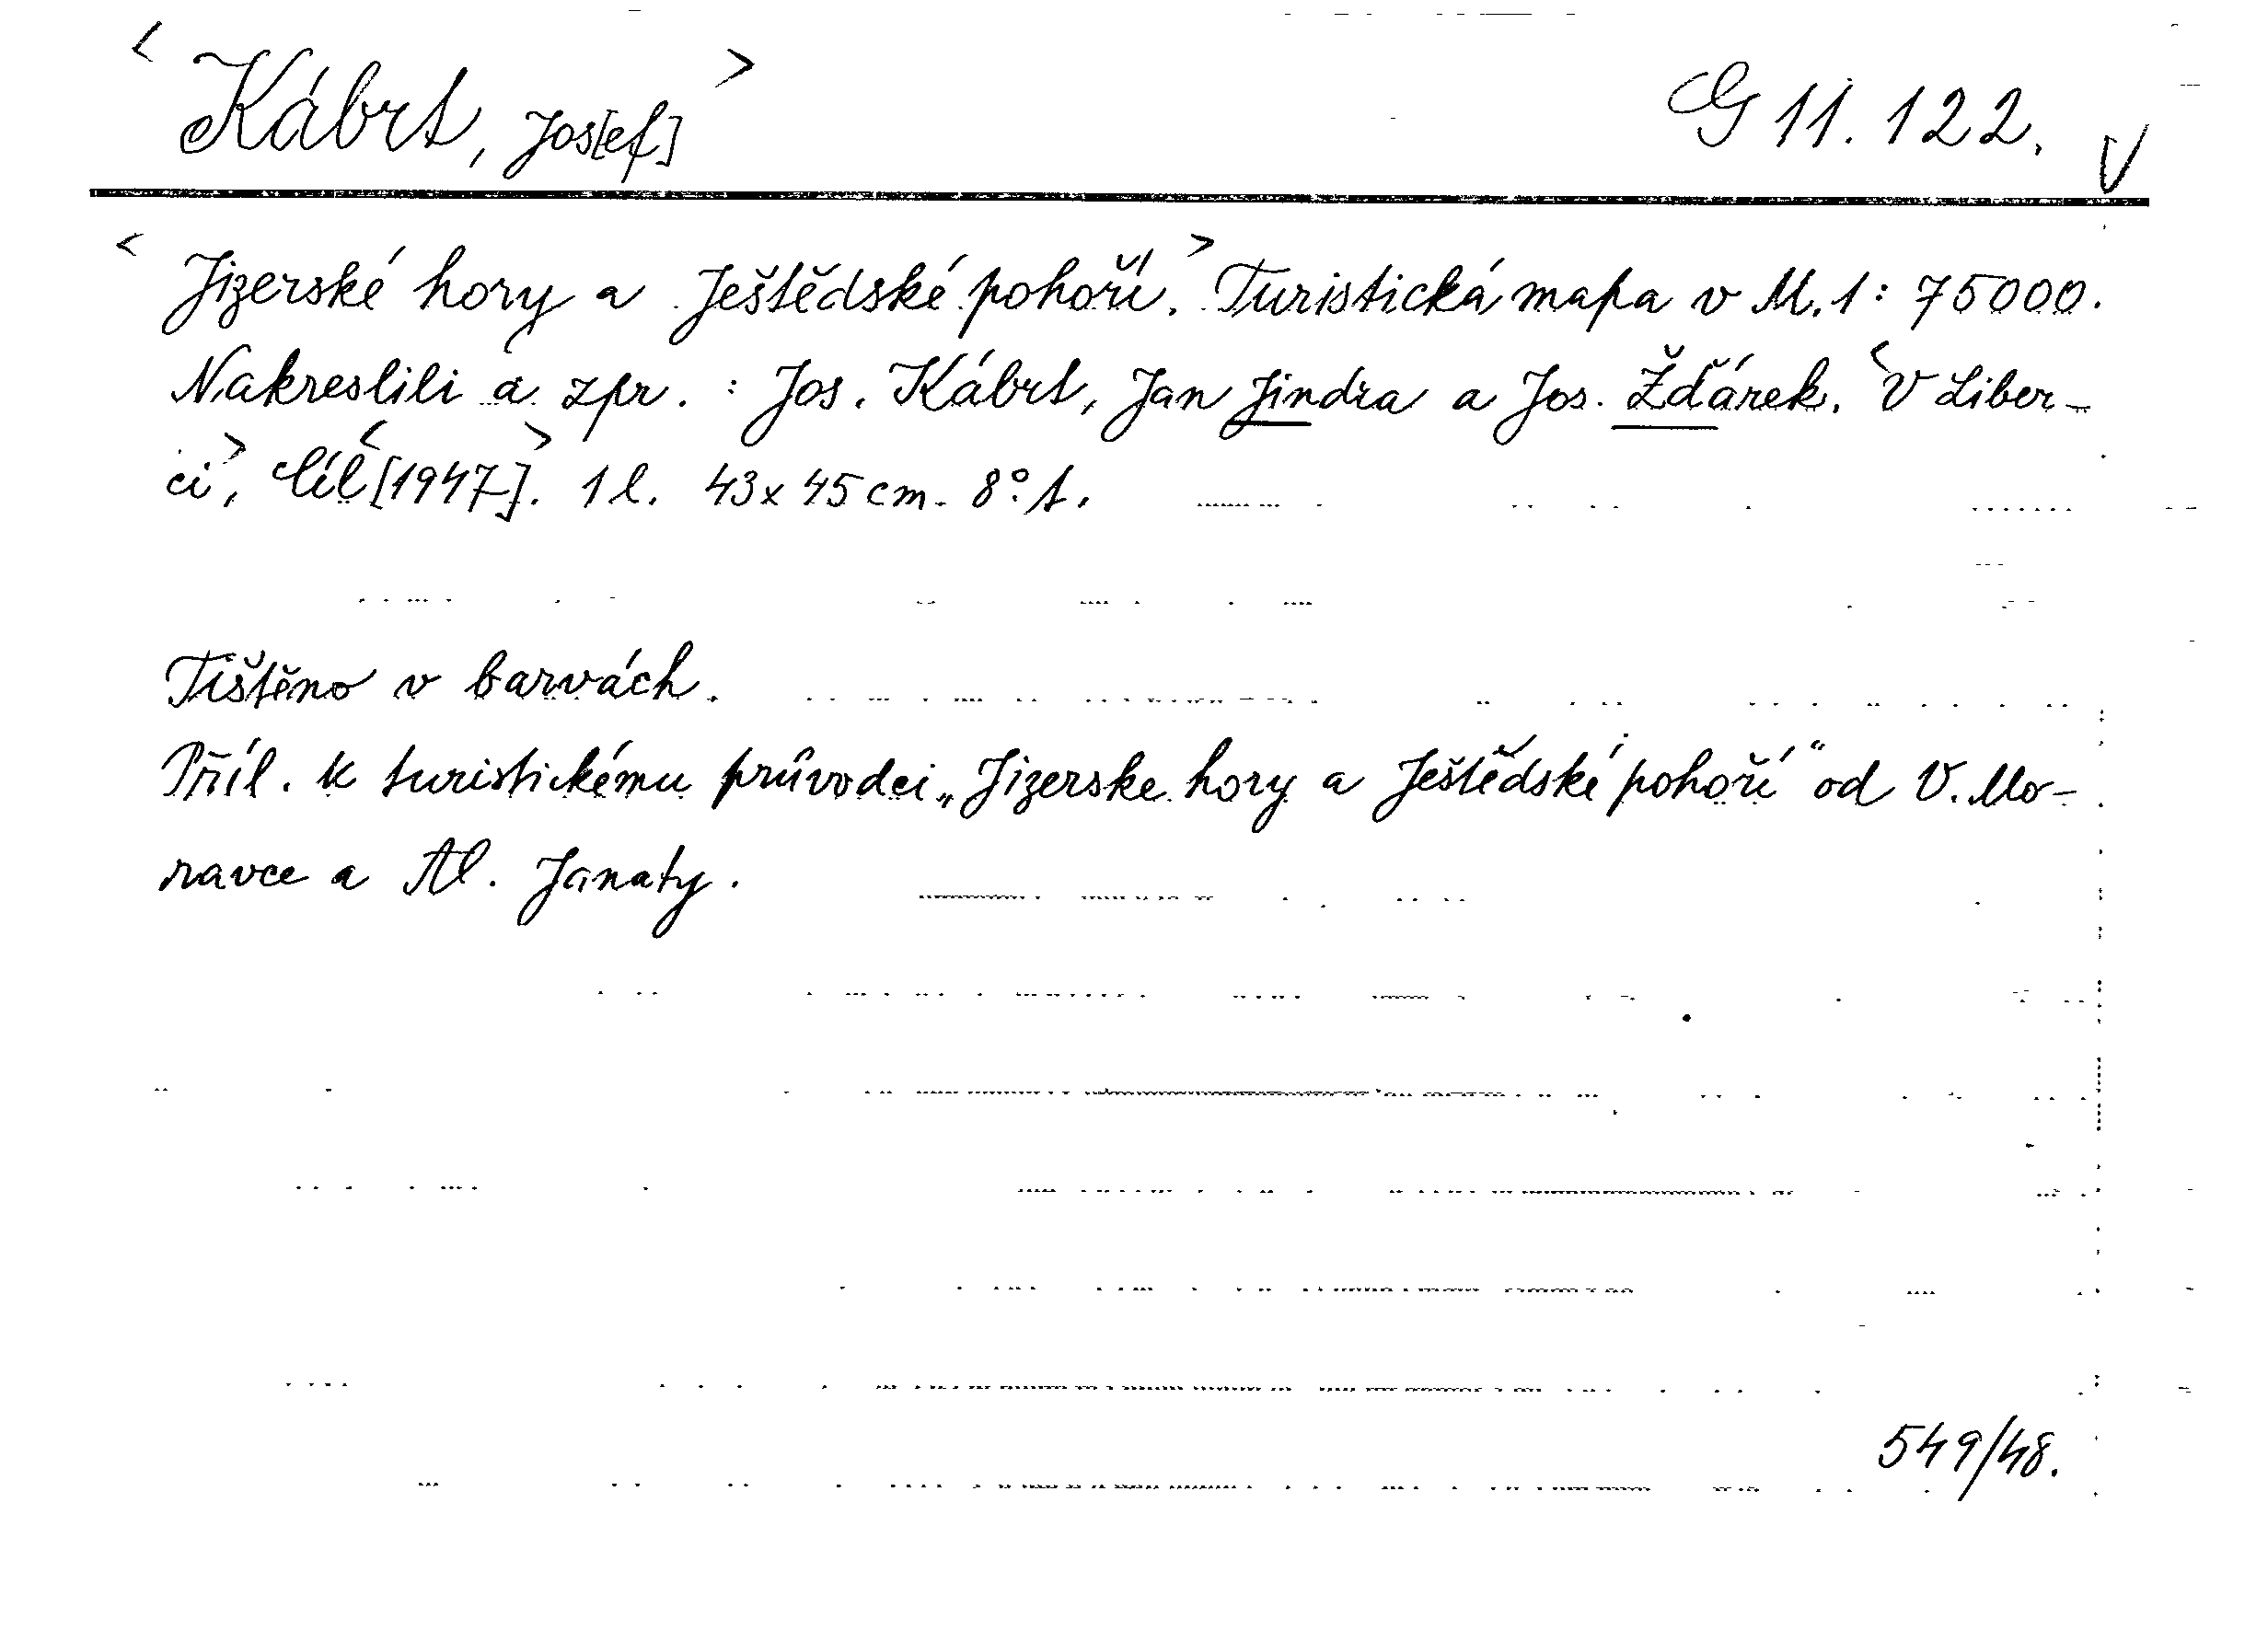 < Kábrt, Jos[ef] > G 11.122. V
< Jizerské hory a Ještědské pohoří. > Turistická mapa v M. 1 : 75000.
Nakreslili a zpr. : Jos. Kábrt, Jan Jindra a Jos. Žďárek. < V Liber-
ci >, Cíl < [1947] >. 1 l. 43 x 45 cm. 8°. t.
Tištěno v barvách.
Příl. k turistickému průvodci „Jizerske hory a Ještědské pohoří“ od V. Mo-
ravce a Al. Janaty.
549/48.